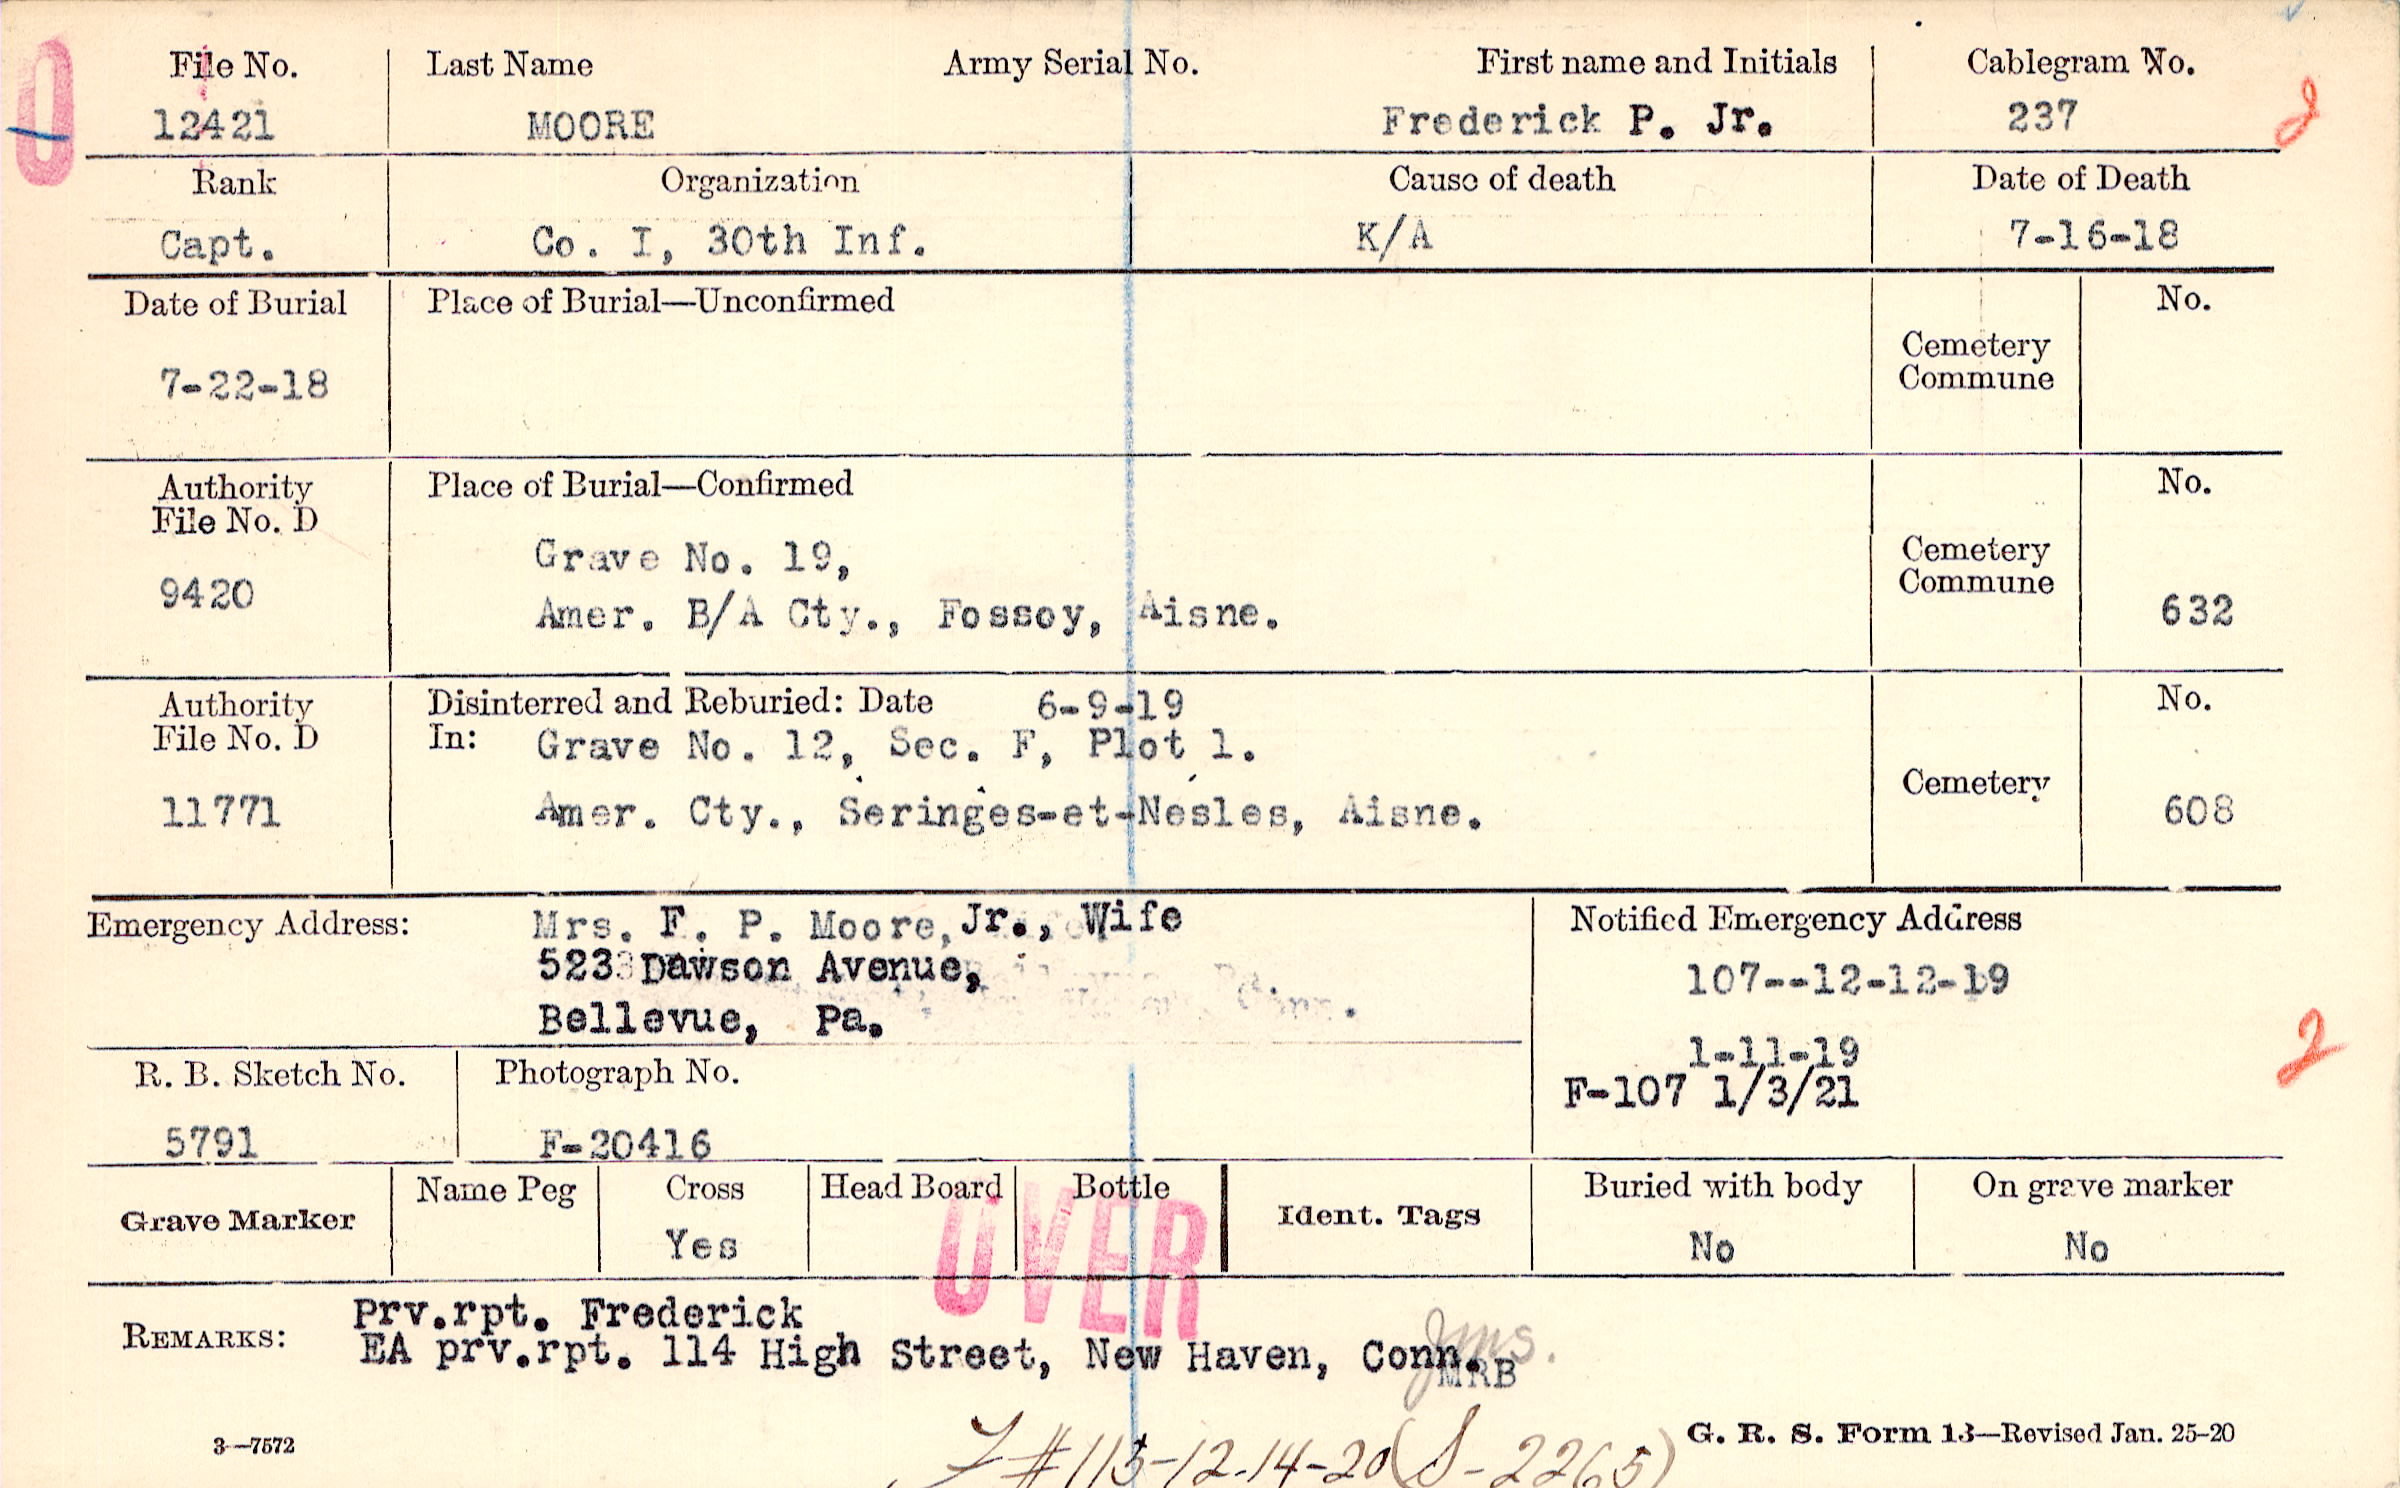 File No. Last Name Army Serial No. First name and Initials Cablegram No.
12421 MOORE Frederick P. Jr. 237
2
Rank Organization Cause of death Date of Death
Capt. Co. I, 30th Inf. K/A 7-16-18
Date of Burial Place of Burial—Unconfirmed No.
Cemetery
Commune
7-22-18
Authority Place of Burial—Confirmed No.
File No. D
Grave No. 19, Cemetery
9420 Commune
Amer. B/A Cty., Fossoy, Aisne. 632
Authority Disinterred and Reburied: Date 6-9-19 No.
File No. D In: Grave No. 12, Sec. F, Plot 1.
Cemetery
11771 Amer. Cty., Seringes-et-Nesles, Aisne. 608
Emergency Address: Mrs. F. P. Moore, Jr., Wife Notified Emergency Address
523 Dawson Avenue, 107--12-12-19
Bellevue, Pa.
1-11-19
2
R. B. Sketch No. Photograph No. F-107 1/3/21
5791 F-20416
Grave Marker Name Peg Cross Head Board Bottle Ident. Tags Buried with body On grave marker
Yes No No
OVER
REMARKS: Prv.rpt. Frederick
EA prv.rpt. 114 High Street, New Haven, Conn.
Jms.
MRB
#115-12-14-20 (S-2265)
3—7572 G. R. S. Form 13—Revised Jan. 25-20